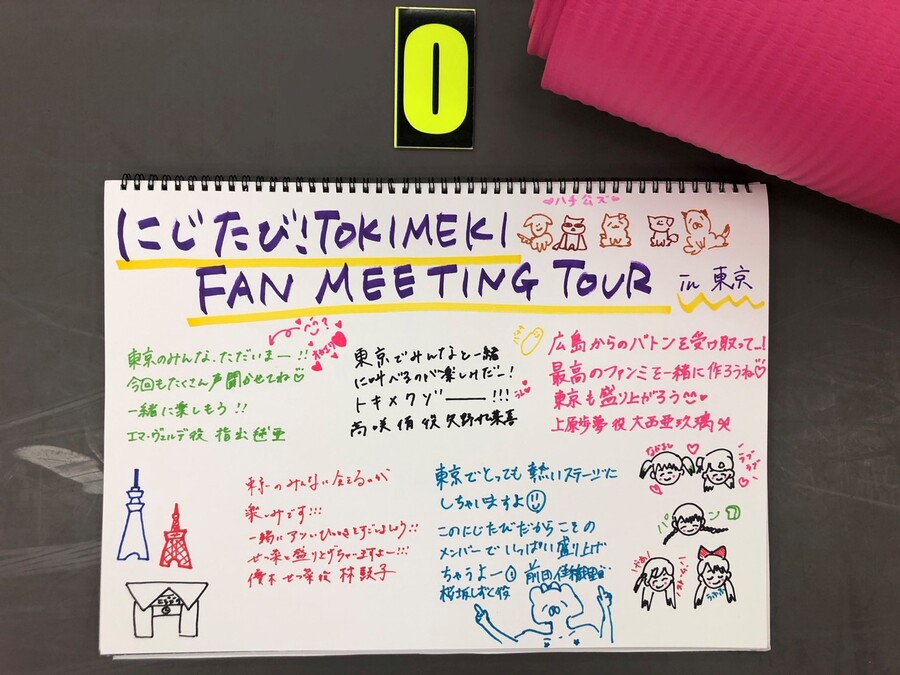 0
♡ハチ公ズ♡
にじたび!TOKIMEKI
FAN MEETING TOUR in 東京
東京のみんな、ただいまー!!
今回もたくさん声聞かせてね♡
一緒に楽しもう!!
エマ・ヴェルデ役 指出毬亜
東京でみんなと一緒
に叫べるのが楽しみだー!
トキメクゾ――!!!
高咲侑役 矢野妃菜喜
広島からのバトンを受け取って…!
最高のファンミを一緒に作ろうね♡
東京も盛り上がろう
上原歩夢役 大西亜玖璃
東京のみんなに会えるのが
楽しみです!!!
一緒に
せつ菜と盛り上げちゃいますよー!!!
優木せつ菜役 林鼓子
東京でとっても熱いステージに
しちゃいますよ
このにじたびだからこその
メンバーでいっぱい盛り上げ
ちゃうよー 前田佳織里
桜坂しずく役
ラブラブ
パン